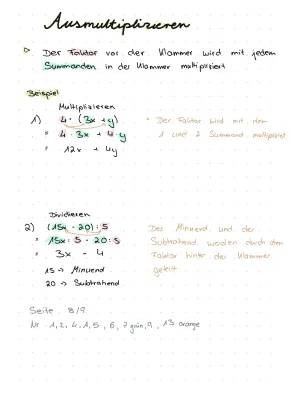 Ausmultiplizieren
▷ Der Faktor vor der Klammer wird mit jedem
Summanden in der Klammer multipliziert
Beispiel
Multiplizieren
1) 4 · (3x + y)
= 4 · 3x + 4 · y
= 12x + 4y
* Der Faktor wird mit dem
1 und 2 Summand multipliziert
Dividieren
2) (15x - 20) : 5
= 15x : 5 - 20 : 5
= 3x - 4
15 → Minuend
20 → Subtrahend
Der Minuend und der
Subtrahend werden durch den
Faktor hinter der Klammer
geteilt
Seite 8/9
Nr. 1, 2, 4, 5, 6, 7 grün, 9, 13 orange